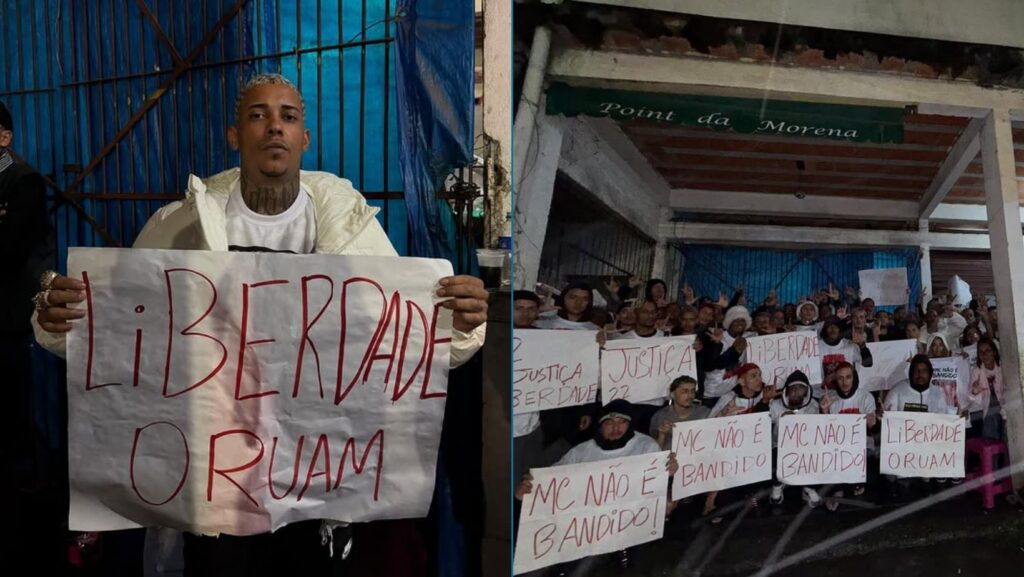 LiBERDADE
ORUAM
Point da Morena
JUSTIÇA
BERDADE
JUSTIÇA
22
LIBERDADE
ORUAM
MC NÃO É
BANDIDO
MC NÃO É
BANDIDO!
MC NÃO É
BANDIDO
MC NÃO É
BANDIDO!
LIBERDADE
ORUAM